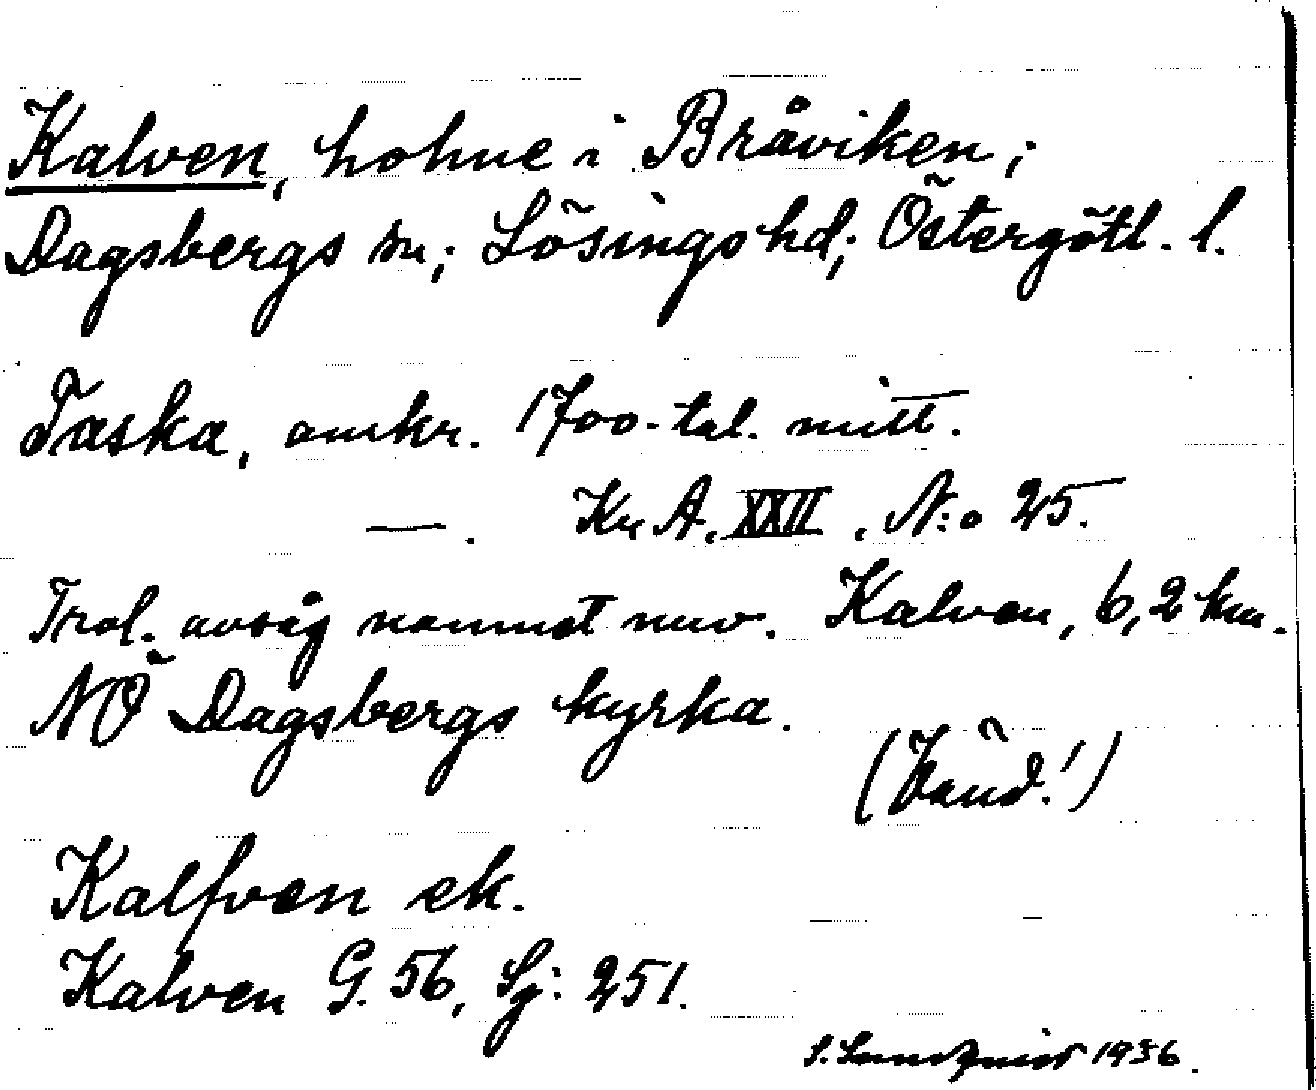 Kalven, holme i Bråviken;
Dagsbergs sn; Lösings hd; Östergötl. l.
Taska, omkr. 1700-tal. mitt.
—. Kr. A. XXII, N:o 25.
Trol. avsåg namnet nuv. Kalven, 6,2 km.
NÖ Dagsbergs kyrka.
(Vänd!)
Kalfven ek.
Kalven G. 56, Sj: 251.
S. Lundqvist 1936.